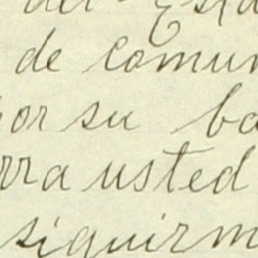 del Esta
de comun
por su ba
rra usted
siguirm